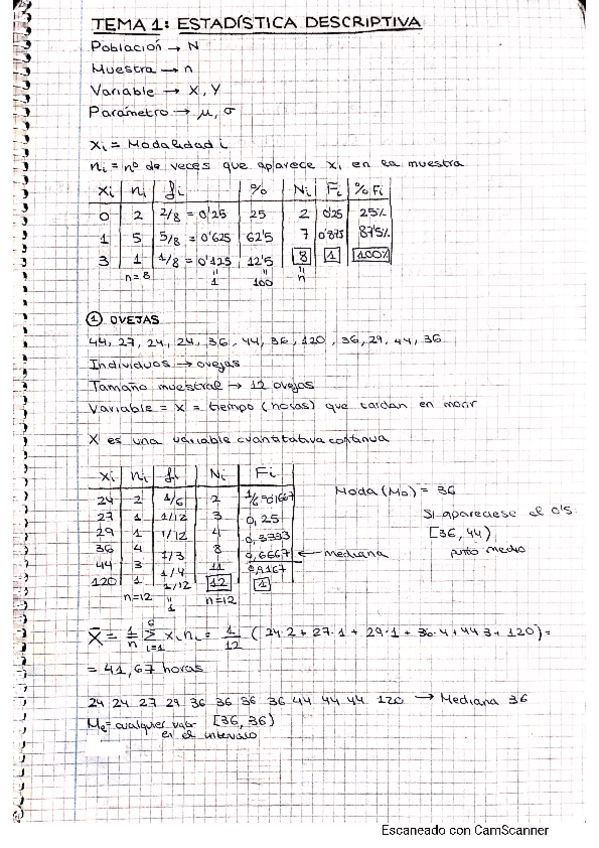 TEMA 1: ESTADÍSTICA DESCRIPTIVA
Población → N
Muestra → n
Variable → X, Y
Parámetro → μ, σ
Xi = Modalidad i
ni = nº de veces que aparece xi en la muestra
Xi ni fi % Ni Fi % Fi
0 2 2/8 = 0'25 25 2 0'25 25%
1 5 5/8 = 0'625 62'5 7 0'875 87'5%
3 1 1/8 = 0'125 12'5 8 1 100%
n=8 " 1 " 100 " n
① OVEJAS
44, 27, 24, 24, 36, 44, 36, 120, 36, 29, 44, 36
Individuos → ovejas
Tamaño muestral → 12 ovejas
Variable = X = tiempo (horas) que tardan en morir
X es una variable cuantitativa continua
Xi ni fi Ni Fi
24 2 1/6 2 1/6=0'1667
27 1 1/12 3 0,25
29 1 1/12 4 0,3333
36 4 1/3 8 0,6667 ← mediana
44 3 1/4 11 0,9167
120 1 1/12 12 1
n=12 " 1 n=12
Moda (Mo) = 36
Si apareciese el 0'5:
[36, 44)
punto medio
X̄ = 1/n Σ i=1 6 xi ni = 1/12 (24·2 + 27·1 + 29·1 + 36·4 + 44·3 + 120) =
= 41,67 horas
24 24 27 29 36 36 36 36 44 44 44 120 → Mediana 36
Me = cualquier valor [36, 36)
en el intervalo
Escaneado con CamScanner